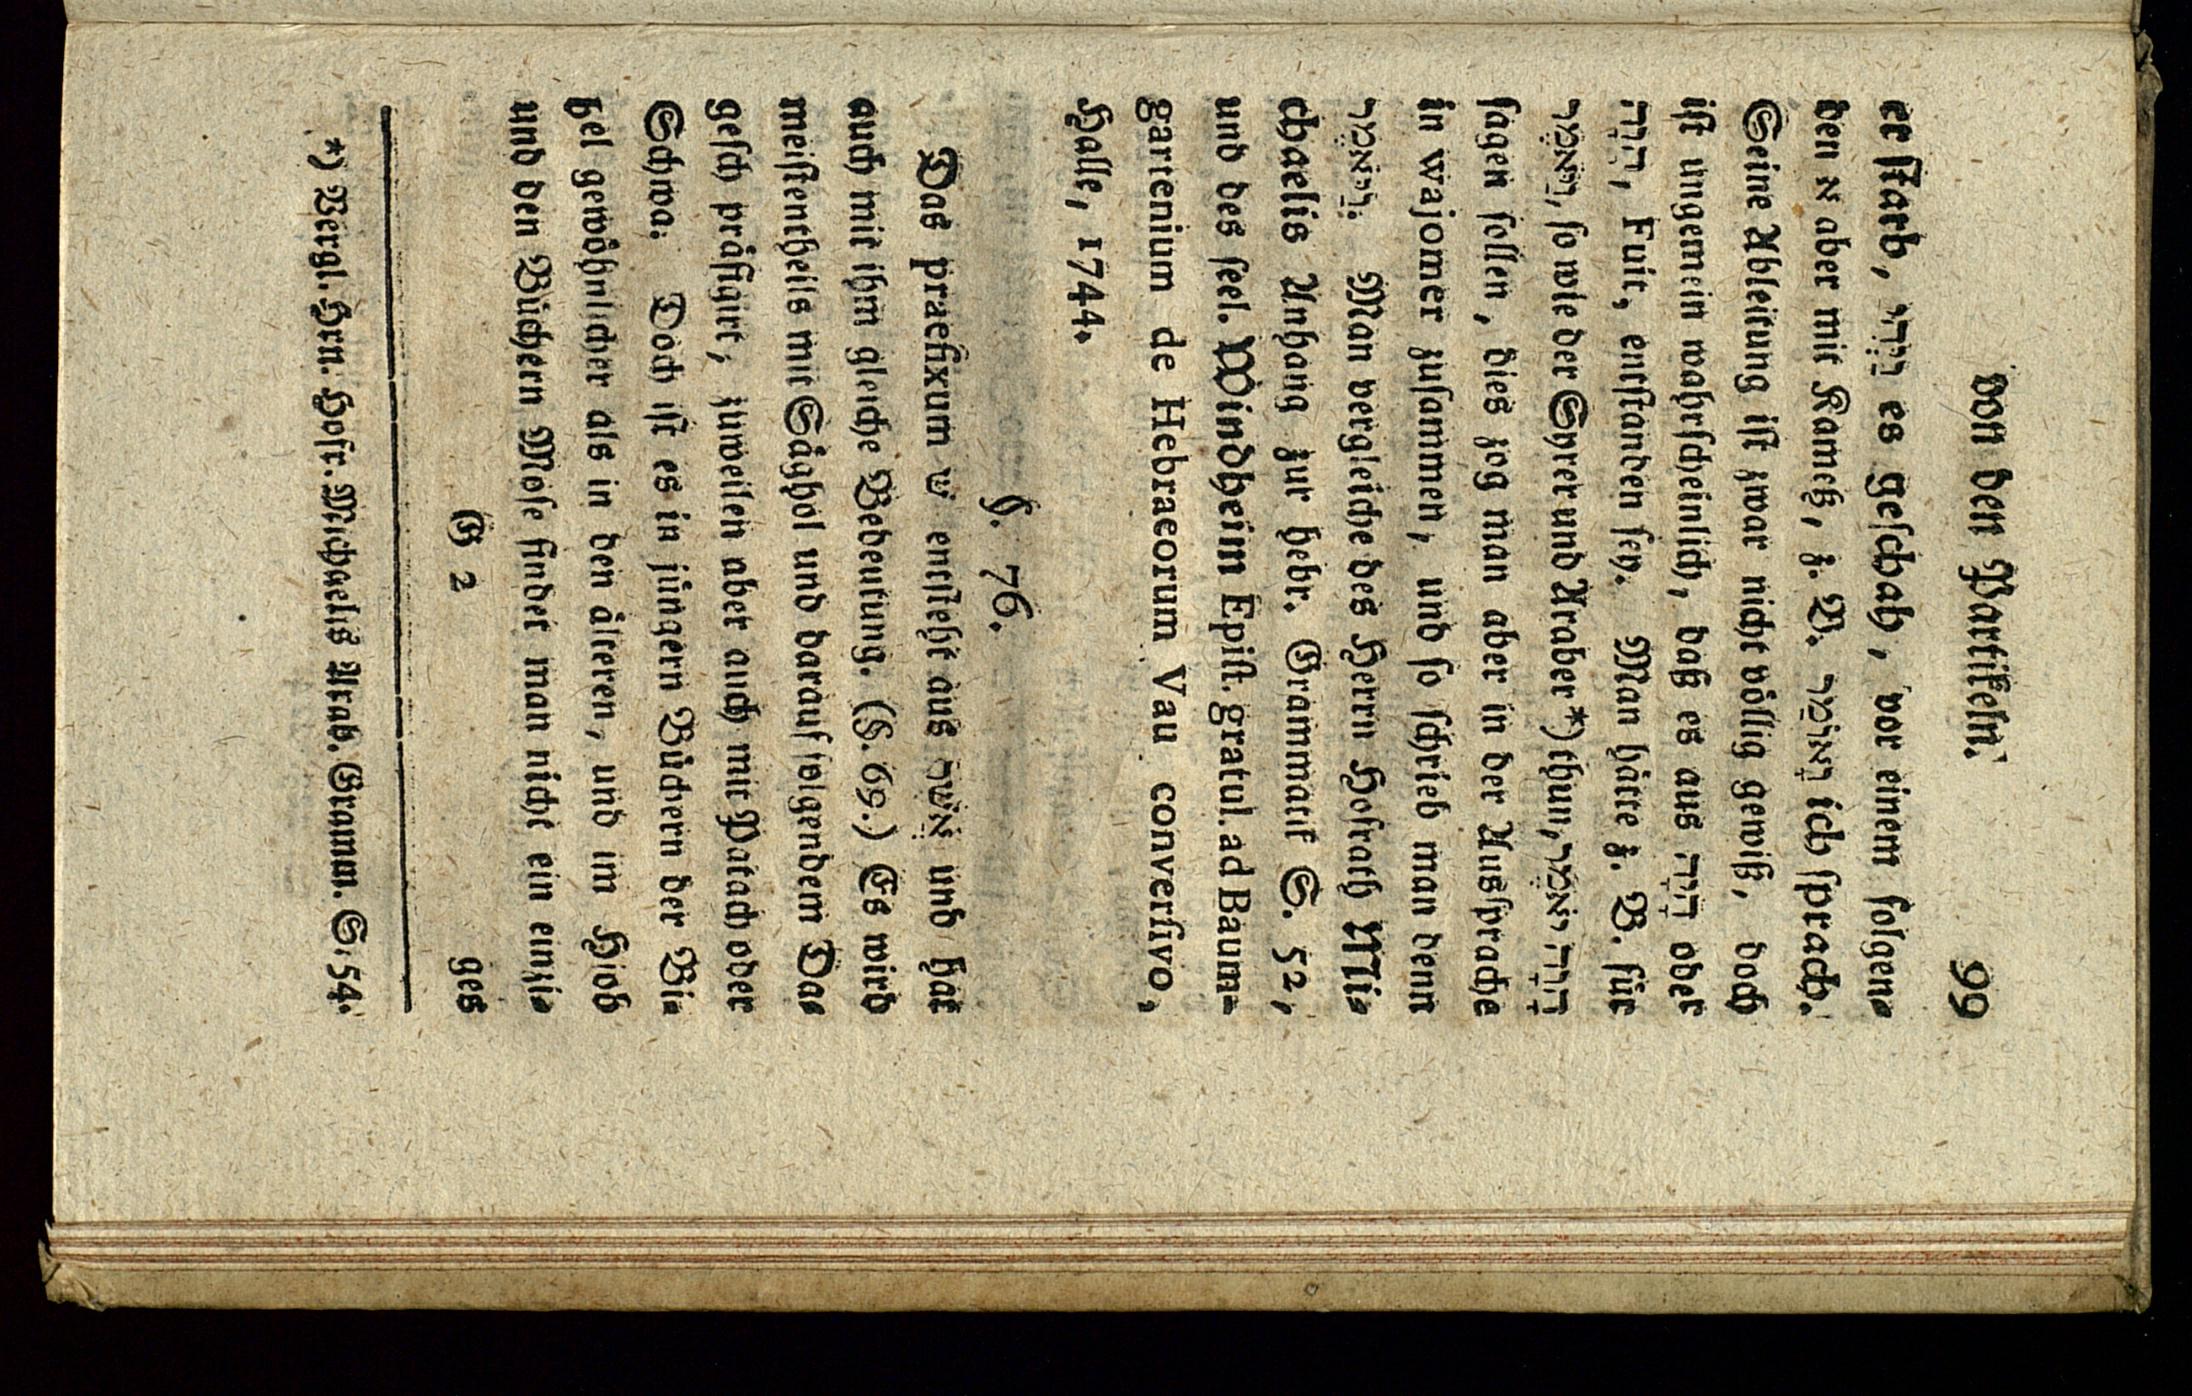 von den Partikeln. 99
er ſtarb, וַיְהִי es geſchah, vor einem folgen⸗
den א aber mit Kametz, z. B. וָאוֹמַר ich ſprach.
Seine Ableitung iſt zwar nicht völlig gewiß, doch
iſt ungemein wahrſcheinlich, daß es aus הָיָה oder
הָוָה, Fuit, entſtanden ſey. Man hätte z. B. für
וַיֹּאמֶר, ſo wie der Syrer und Araber *) thun, הָוָה יֹאמֶר
ſagen ſollen, dies zog man aber in der Ausſprache
in wajomer zuſammen, und ſo ſchrieb man denn
וַיֹּאמֶר. Man vergleiche des Herrn Hofrath Mi⸗
chaelis Anhang zur hebr. Grammatik S. 52,
und des ſeel. Windheim Epiſt. gratul. ad Baum-
gartenium de Hebraeorum Vau converſivo,
Halle, 1744.
§. 76.
Das praefixum שֶׁ entſteht aus אֲשֶׁר und hat
auch mit ihm gleiche Bedeutung. (§. 69.) Es wird
meiſtentheils mit Säghol und darauf folgendem Da⸗
geſch präfigirt, zuweilen aber auch mit Patach oder
Schwa. Doch iſt es in jüngern Büchern der Bi⸗
bel gewöhnlicher als in den älteren, und im Hiob
und den Büchern Moſe findet man nicht ein einzi⸗
G 2 ges
*) Vergl. Hrn. Hofr. Michaelis Arab. Gramm. S. 54.